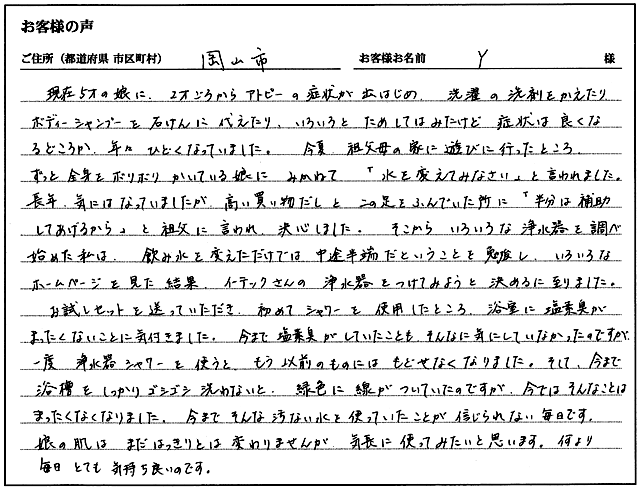 お客様の声
ご住所（都道府県 市区町村） 岡山市 お客様お名前 Y 様
現在5才の娘に、2才ごろからアトピーの症状が出はじめ、洗濯の洗剤をかえたり
ボディーシャンプーを石けんに代えたり、いろいろとためしてはみたけど症状は良くな
るどころか、年々ひどくなっていました。今夏、祖父母の家に遊びに行ったところ、
ずっと全身をボリボリかいている娘にみかねて「水を変えてみなさい」と言われました。
長年、気にはなっていましたが、高い買い物だしと二の足をふんでいた所に「半分は補助
してあげるから」と祖父に言われ、決心しました。そこからいろいろな浄水器を調べ
始めた私は、飲み水を変えただけでは中途半端だということを勉強し、いろいろな
ホームページを見た結果、イーテックさんの浄水器をつけてみようと決めるに至りました。
お試しセットを送っていただき、初めてシャワーを使用したところ、浴室に塩素臭が
まったくないことに気付きました。今まで塩素臭がしていたことも、そんなに気にしていなかったのですが、
一度浄水器シャワーを使うと、もう以前のものにはもどせなくなりました。そして、今まで
浴槽をしっかりゴシゴシ洗わないと、緑色に線がついていたのですが、今ではそんなことは
まったくなくなりました。今までそんな汚ない水を使っていたことが信じられない毎日です。
娘の肌はまだはっきりとは変わりませんが、気長に使ってみたいと思います。何より
毎日とても気持ち良いのです。